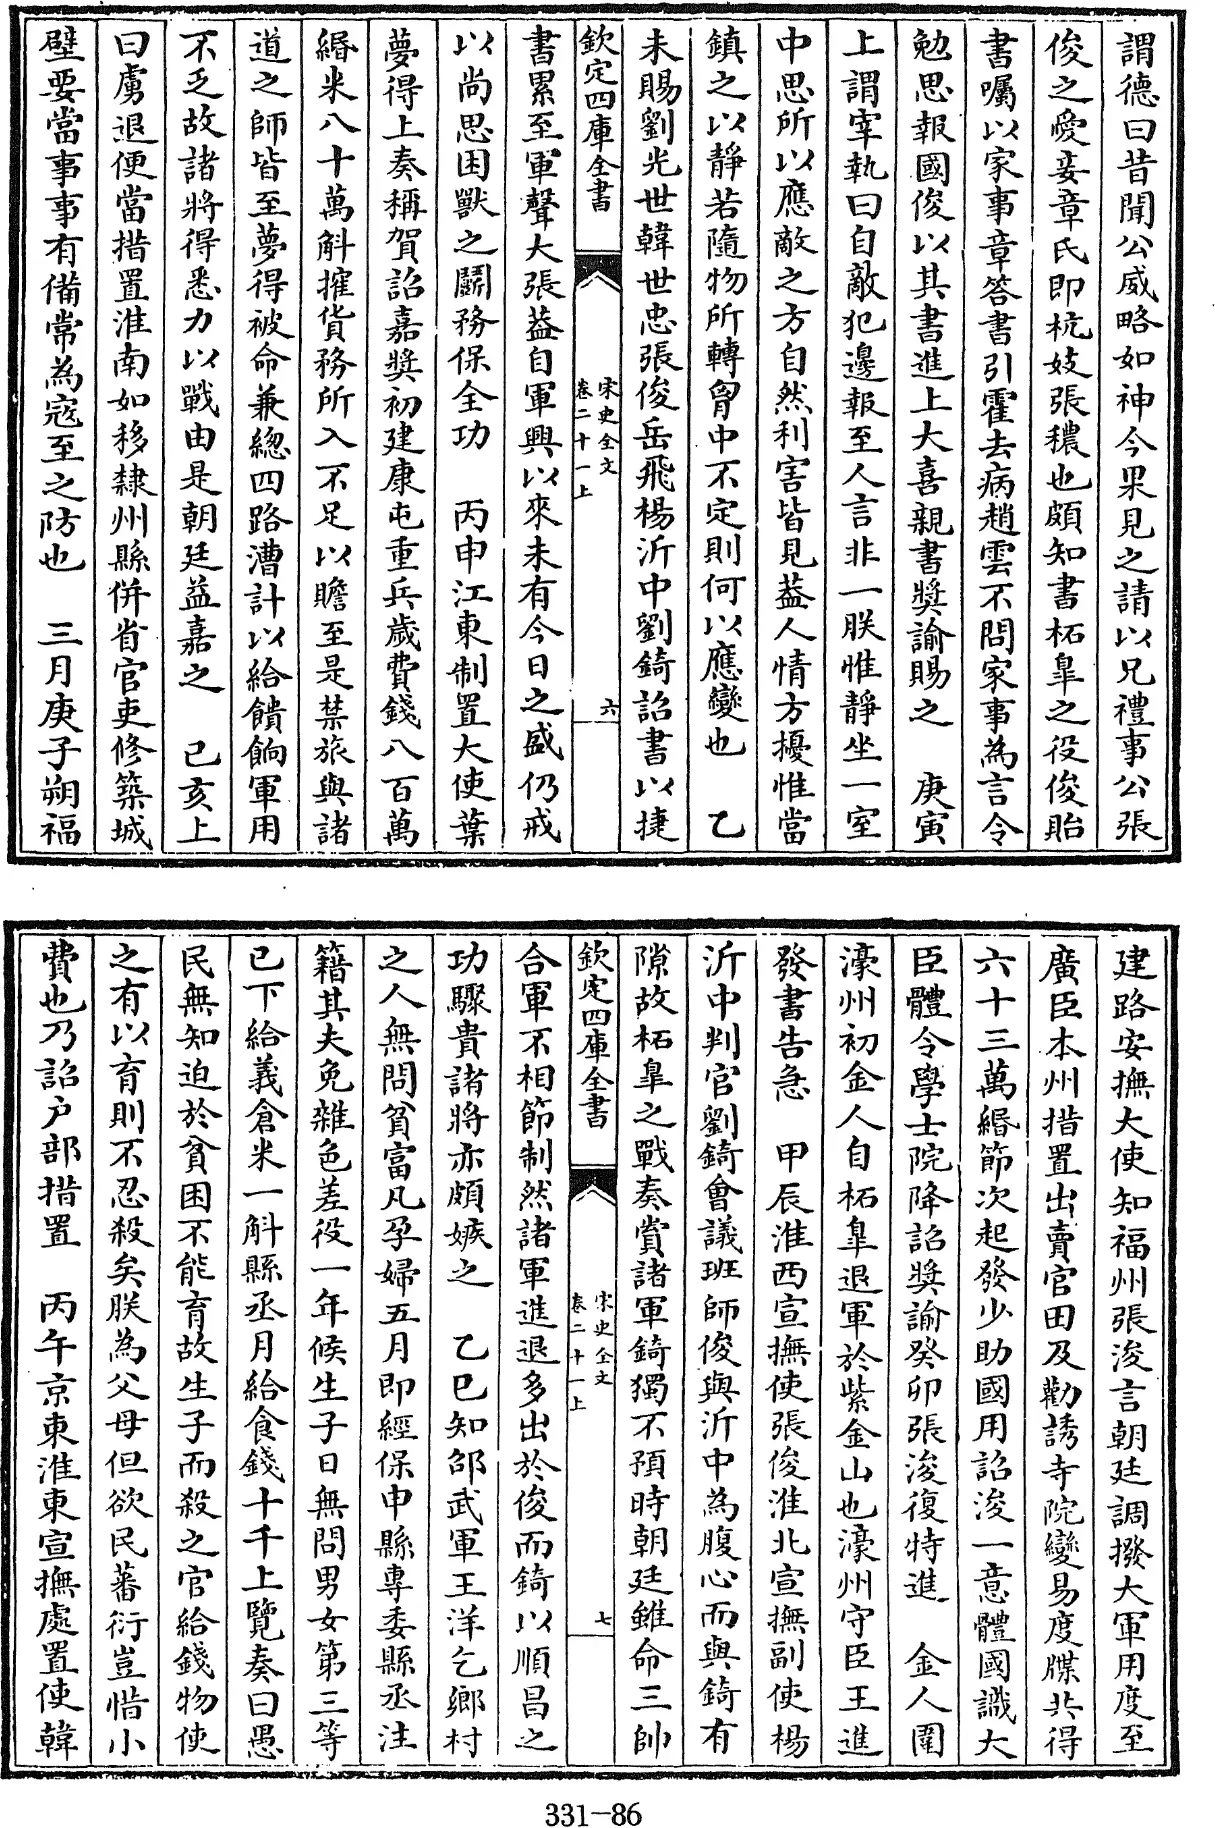 謂德曰昔聞公威略如神今果見之請以兄禮事公張
俊之愛妾章氏即杭妓張穠也頗知書柘臯之役俊貽
書囑以家事章答書引霍去病趙雲不問家事為言令
勉思報國俊以其書進上大喜親書奬諭賜之　庚寅
上謂宰執曰自敵犯邊報至人言非一朕惟靜坐一室
中思所以應敵之方自然利害皆見葢人情方擾惟當
鎮之以靜若隨物所轉胷中不定則何以應變也　乙
未賜劉光世韓世忠張俊岳飛楊沂中劉錡詔書以捷
欽定四庫全書
宋史全文
卷二十一上
六
書累至軍聲大張葢自軍興以來未有今日之盛仍戒
以尚思困獸之鬭務保全功　丙申江東制置大使葉
夢得上奏稱賀詔嘉奬初建康屯重兵歳費錢八百萬
緡米八十萬斛搉貨務所入不足以贍至是禁旅與諸
道之師皆至夢得被命兼總四路漕計以給饋餉軍用
不乏故諸將得悉力以戰由是朝廷益嘉之　己亥上
曰虜退便當措置淮南如移隸州縣併省官吏修築城
壁要當事事有備常為寇至之防也　三月庚子朔福
建路安撫大使知福州張浚言朝廷調撥大軍用度至
廣臣本州措置出賣官田及勸誘寺院變易度牒共得
六十三萬緡節次起發少助國用詔浚一意體國識大
臣體令學士院降詔奬諭癸卯張浚復特進　金人圍
濠州初金人自柘臯退軍於紫金山也濠州守臣王進
發書告急　甲辰淮西宣撫使張俊淮北宣撫副使楊
沂中判官劉錡會議班師俊與沂中為腹心而與錡有
隙故柘臯之戰奏賞諸軍錡獨不預時朝廷雖命三帥
欽定四庫全書
宋史全文
卷二十一上
七
合軍不相節制然諸軍進退多出於俊而錡以順昌之
功驟貴諸將亦頗嫉之　乙巳知邵武軍王洋乞鄉村
之人無問貧富凡孕婦五月即經保申縣專委縣丞注
籍其夫免雜色差役一年候生子日無問男女第三等
已下給義倉米一斛縣丞月給食錢十千上覽奏曰愚
民無知迫於貧困不能育故生子而殺之官給錢物使
之有以育則不忍殺矣朕為父母但欲民蕃衍豈惜小
費也乃詔户部措置　丙午京東淮東宣撫處置使韓
331-86